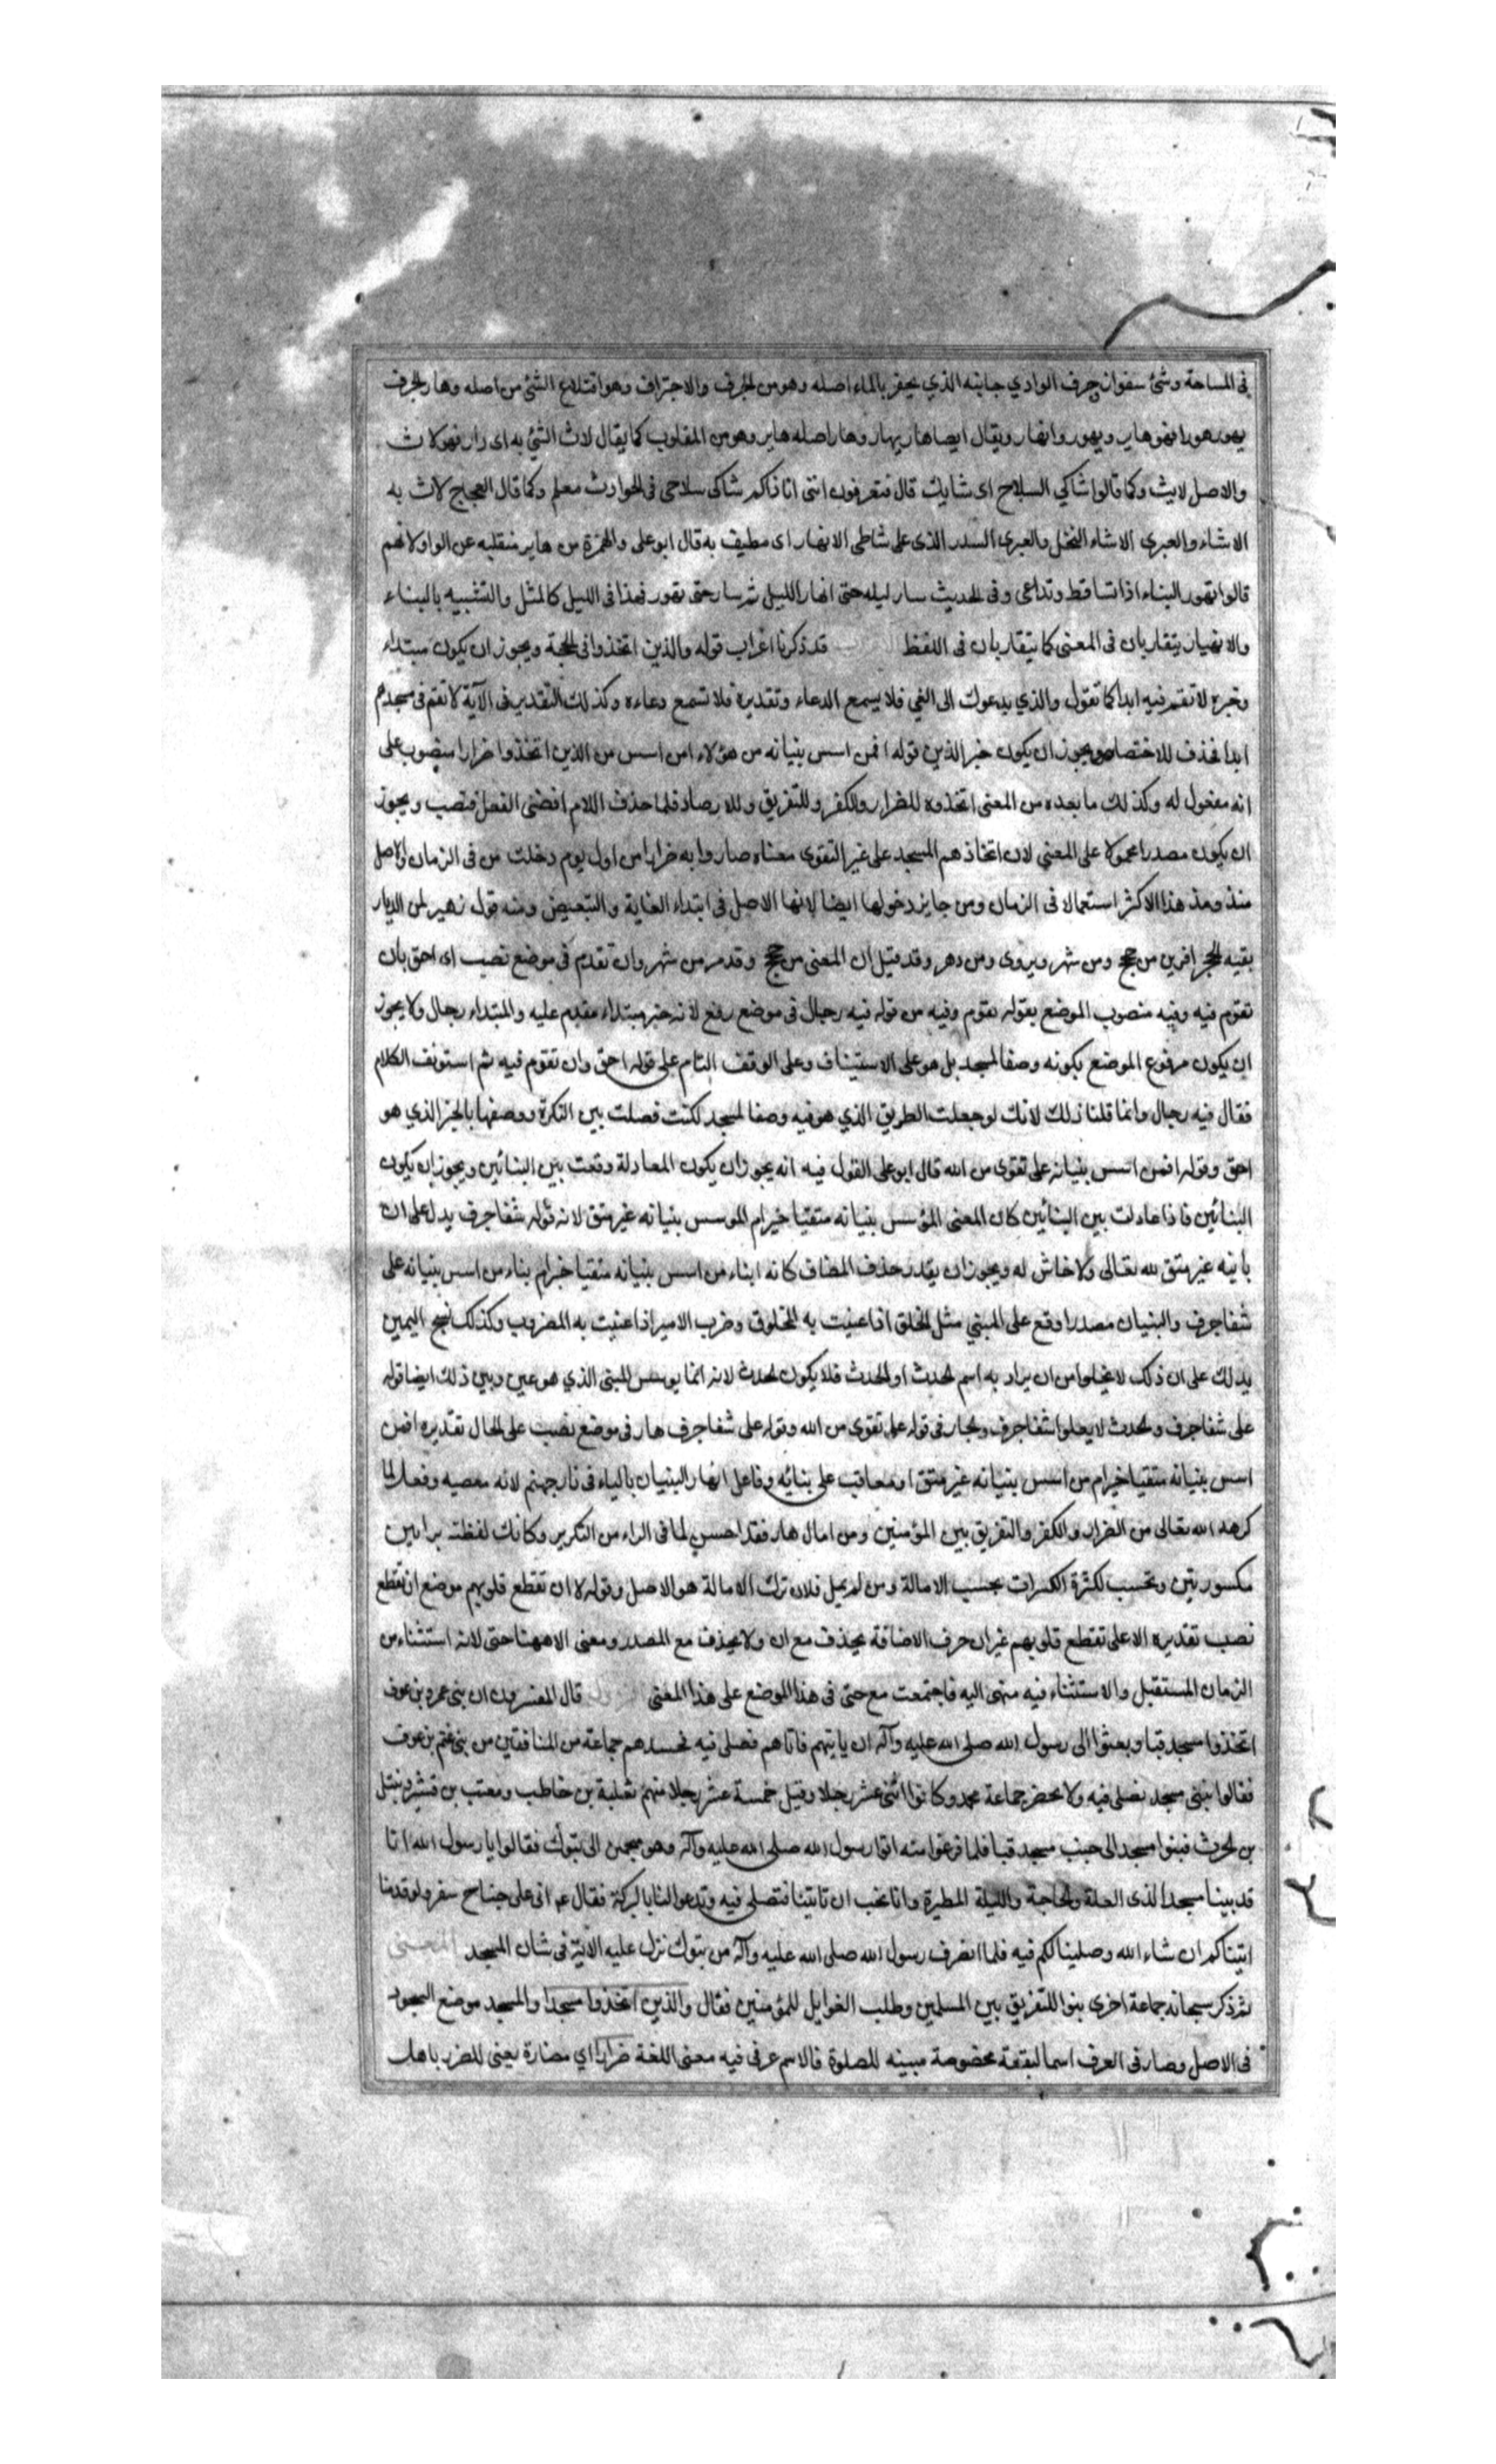 فى المساحة وشئ سفوان جرف الوادي جانبه الذي يحفر بالماء اصله وهو من الجرف والاجتراف وهو اقتلاع الشئ من اصله وهار الجرف
يهور هورا فهو هاير ويهور وانهار ويقال ايضا هار يهار وهار اصله هاير وهو من المقلوب كما يقال لاث الشئ به اى دار فهو لاث
والاصل لايث وكما قالوا شاكي السلاح اى شايك قال فتعرفونى اننى انا ذاكم شاكى سلاحى فى الحوادث معلم وكما قال العجاج لاث به
الاشاء والعبرى الاشاء النخل والعبرى السدر الذى على شاطى الانهار اى مطيف به قال ابو على والهمزة من هاير منقلبه عن الواو لانهم
قالوا تهور البناء اذا تساقط وتداعى وفى الحديث سار ليله حتى انهار الليل ثم سار حتى تهور فهذا فى الليل كالمثل والتشبيه بالبناء
والانهيار يتقاربان فى المعنى كما يتقاربان فى اللفظ قد ذكرنا اعراب قوله والذين اتخذوا فى الحجة ويجوز ان يكون مبتداء
وخبره لا تقم فيه ابدا كما تقول والذي يدعوك الى الغي فلا يسمع الدعاء وتقديره فلا تسمع دعاءه وكذلك التقدير فى الآية لا تقم فى مسجدهم
ابدا فحذف للاختصار ويجوز ان يكون خبر الذين قوله افمن اسس بنيانه من هؤلاء امن اسس من الذين اتخذوا ضرارا منصوب على
انه مفعول له وكذلك ما بعده من المعنى اتخذوه للضرار والكفر وللتفريق وللارصاد فلما حذف اللام افضى الفعل فنصب ويجوز
ان يكون مصدرا محمولا على المعنى لان اتخاذهم المسجد على غير التقوى معناه صاروا به ضرارا من اول يوم دخلت من فى الزمان والاصل
منذ ومذ هذا الاكثر استعمالا فى الزمان ومن جايز دخولها ايضا لانها الاصل فى ابتداء الغاية والتبعيض ومنه قول زهير لمن الديار
بقنة الحجر اقوين من حجج ومن شهر ويروى ومن دهر وقد قيل ان المعنى من حجج وقد مر من شهر وان تقدم فى موضع نصب اى احق بان
تقوم فيه وفيه منصوب الموضع بقوله تقوم وفيه من قوله فيه رجال فى موضع رفع لانه خبر مبتداء مقدم عليه والمبتداء رجال ولا يجوز
ان يكون مرفوع الموضع بكونه وصفا لمسجد بل هو على الاستيناف وعلى الوقف التام على قوله احق وان تقوم فيه ثم استونف الكلام
فقال فيه رجال وانما قلنا ذلك لانك لو جعلت الطريق الذي هو فيه وصفا لمسجد لكنت فصلت بين النكرة ووصفها بالخبر الذي هو
احق وقوله افمن اسس بنيانه على تقوى من الله قال ابو على القول فيه انه يجوز ان يكون المعادلة وقعت بين البنائين ويجوز ان يكون
البنائين فاذا عادلت بين البنائين كان المعنى المؤسس بنيانه متقيا خير ام المؤسس بنيانه غير متق لانه قوله شفا جرف يدل على ان
بانيه غير متق لله تعالى ولا خاش له ويجوز ان يقدر حذف المضاف كانه ابناء من اسس بنيانه متقيا خير ام بناء من اسس بنيانه على
شفا جرف والبنيان مصدر اوقع على المبنى مثل الخلق اذا عنيت به المخلوق وضرب الامير اذا عنيت به المضروب وكذلك نسج اليمين
يدلك على ان ذلك لا يخلوا من ان يراد به اسم الحدث او المحدث فلا يكون الحدث لانه انما يوسس المبنى الذي هو عين ويبين ذلك ايضا قوله
على شفا جرف والحدث لا يعلوا شفا جرف والجار فى قوله على تقوى من الله وقوله على شفا جرف هار فى موضع نصب على الحال تقديره افمن
اسس بنيانه متقيا خير ام من اسس بنيانه غير متق او معاقب على بنائه وفاعل انهار البنيان بالباء فى نار جهنم لانه معصيه وفعل لما
كرهه الله تعالى من الضرار والكفر والتفريق بين المؤمنين ومن امال هار فقد احسن لما فى الراء من التكرير وكانك لفظت برائين
مكسورتين وبحسب كثرة الكسرات بحسب الامالة ومن لم يمل فلان ترك الامالة هو الاصل وقوله الا ان تقطع قلوبهم موضع ان تقطع
نصب تقديره الا على تقطع قلوبهم غير ان حرف الاضافة يحذف مع ان ولا يحذف مع المصدر ومعنى الا ههنا حتى لانه استثناء من
الزمان المستقبل والاستثناء فيه منتهى اليه فاجتمعت مع حتى فى هذا الموضع على هذا المعنى قال المفسرون ان بنى عمرو بن عوف
اتخذوا مسجد قبا وبعثوا الى رسول الله صلى الله عليه وآله ان ياتيهم فاتاهم فصلى فيه فحسدهم جماعة من المنافقين من بنى غنم بن عوف
فقالوا نبنى مسجد نصلى فيه ولا نحضر جماعة محمد وكانوا اثنى عشر رجلا وقيل خمسة عشر رجلا منهم ثعلبة بن حاطب ومعتب بن قشير ونبتل
بن الحرث فبنوا مسجد الى جنب مسجد قبا فلما فرغوا منه اتوا رسول الله صلى الله عليه وآله وهو يتجهز الى تبوك فقالوا يا رسول الله انا
قد بنينا مسجدا لذى العلة والحاجة والليلة المطيرة وانا نحب ان تاتينا فتصلى فيه وتدعو لنا بالبركة فقال ع م انى على جناح سفر ولو قدمنا
اتيناكم ان شاء الله وصلينا لكم فيه فلما انصرف رسول الله صلى الله عليه وآله من تبوك نزل عليه الاية فى شان المسجد المعنى
ثم ذكر سبحانه جماعة اخرى بنوا للتفريق بين المسلمين وطلب الغوايل للمؤمنين فقال والذين اتخذوا مسجدا والمسجد موضع السجود
فى الاصل وصار فى العرف اسما لبقعة مخصوصة مبينه للصلوة فالاسم عرفى فيه معنى اللغة ضرارا اي مضارة يعنى للضرر باهل